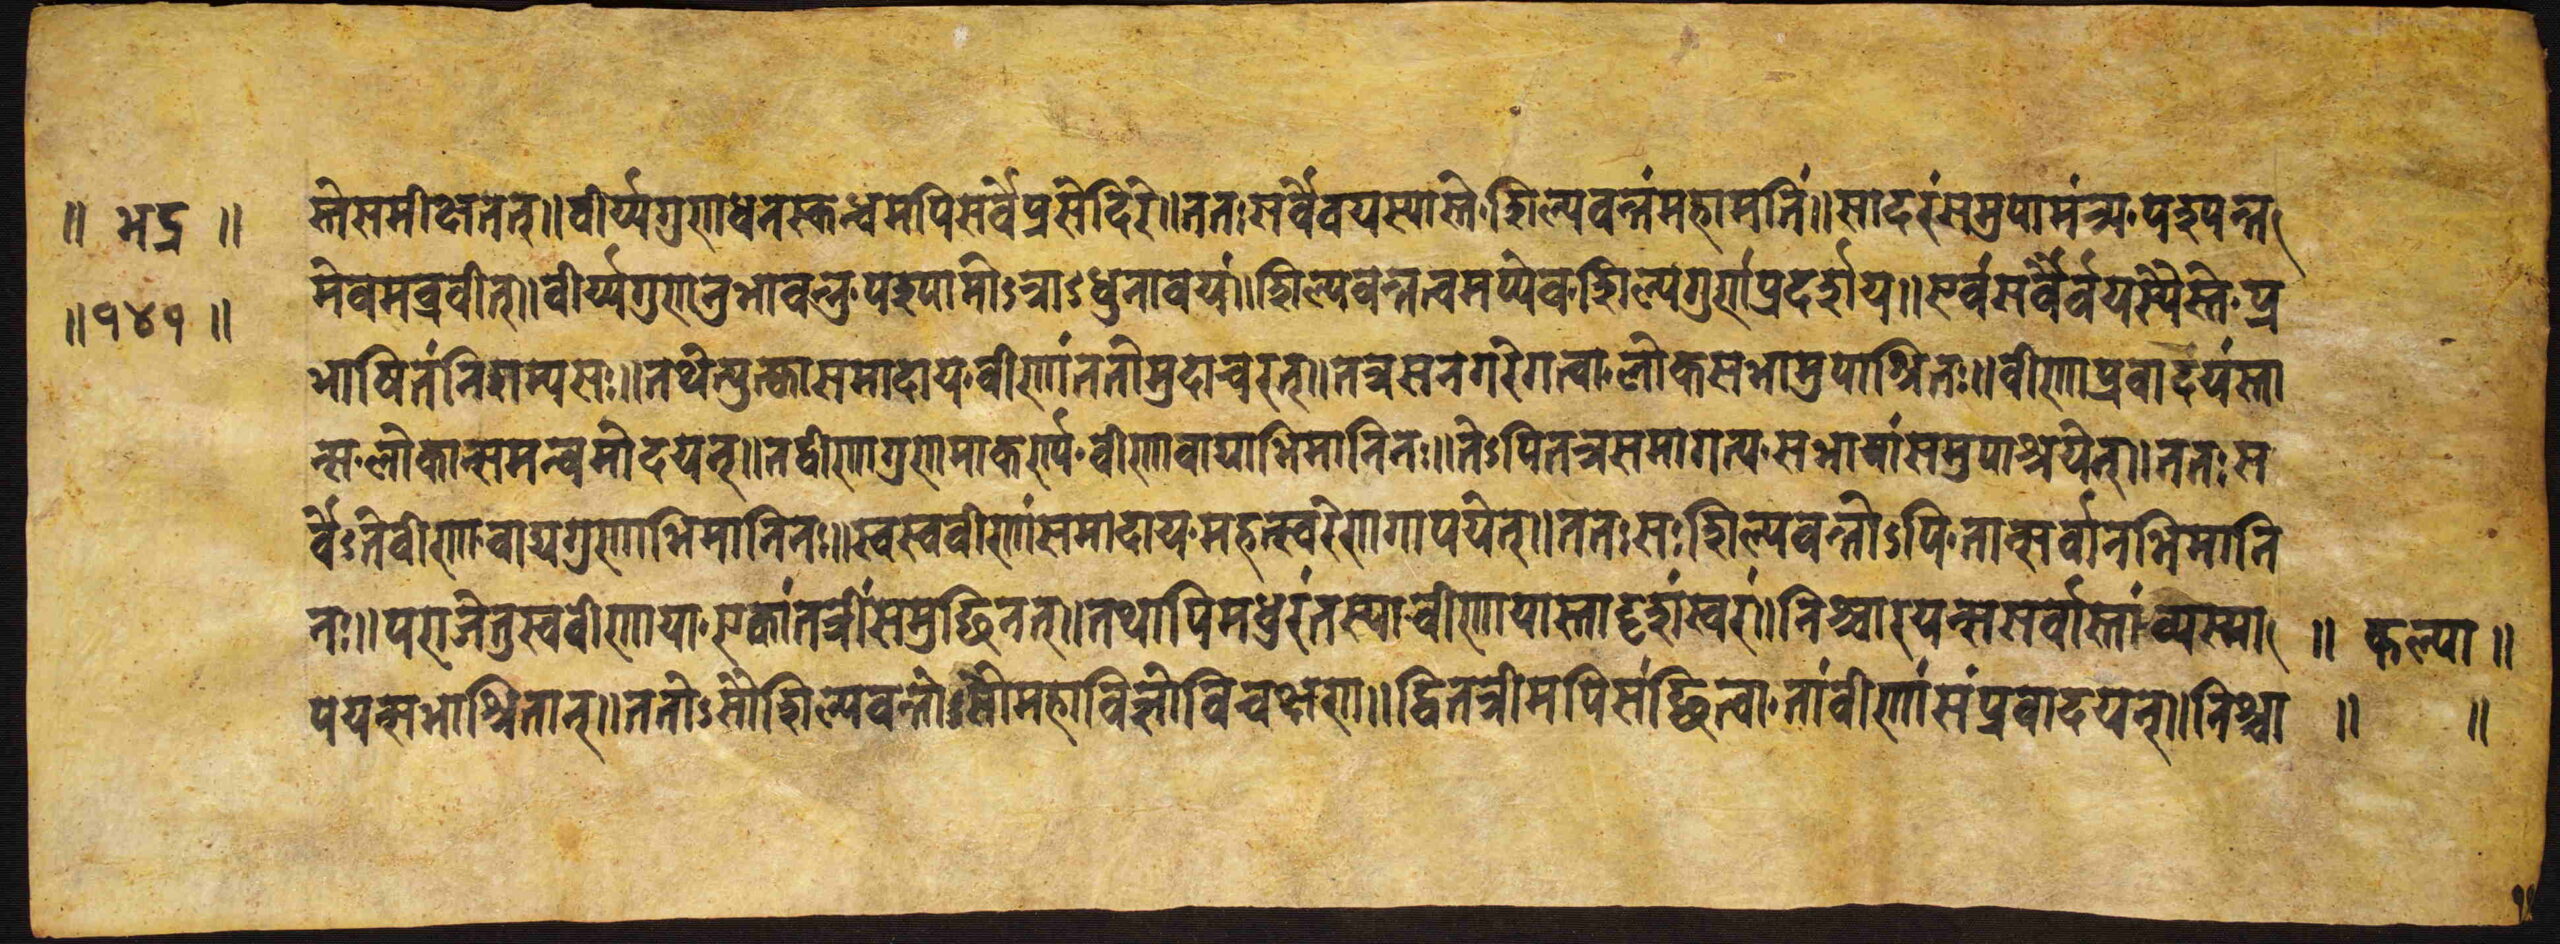 ॥ भद्र ॥
॥ १४१ ॥
स्ते समीक्षतेत्॥ वीर्य्यगुणाधनस्कन्धमपि सर्वे प्रसेदिरे॥ ततः सर्वे वयस्यास्ते, शिल्पवन्तं महामतिं॥ सादरं समुपामंत्र्य, पश्यन्त
मेवमब्रवीत्॥ वीर्य्यगुणानुभावन्तु, पश्यामोऽत्राऽधुनावयं॥ शिल्पवन्तत्वमप्येवं, शिल्पगुणं प्रदर्शय॥ एवं सर्वैर्वयस्यैस्तैः, प्र
भाषितं निशम्य सः॥ तथेत्युत्क्वा समादाय, वीणां ततो मुदाचरत्॥ तत्र स नगरे गत्वा, लोकसभामुपाश्रितः॥ वीणा प्रवादयंस्ता
न्स, लोकान्समन्वमोदयत्॥ तद्वीणागुणमाकर्ण्य, वीणावाद्याभिमानिनः॥ तेऽपि तत्र समागत्य, सभायां समुपाश्रयेत्॥ ततः स
र्वेऽते वीणा, वाद्यगुणाभिमानिनः॥ स्वस्ववीणां समादाय, महत्स्वरेणागापयेत्॥ ततः सः शिल्पवन्तोऽपि, तान्सर्वानभिमानि
नः॥ पराजेतु स्ववीणाया, एकां तन्त्रीं समुच्छिनत्॥ तथापि मधुरं तस्या, वीणायास्तादृशं स्वरं॥ निश्चारयन्स सर्वांस्तां, व्यस्मा
॥ कल्पा ॥
पयन्सभाश्रितान्॥ ततोऽसौ शिल्पवन्तो महाविज्ञो विचक्षण॥ द्वितन्त्रीमपि संच्छित्वा, तां वीणां संप्रवादयन्॥ निश्चा
॥ ॥